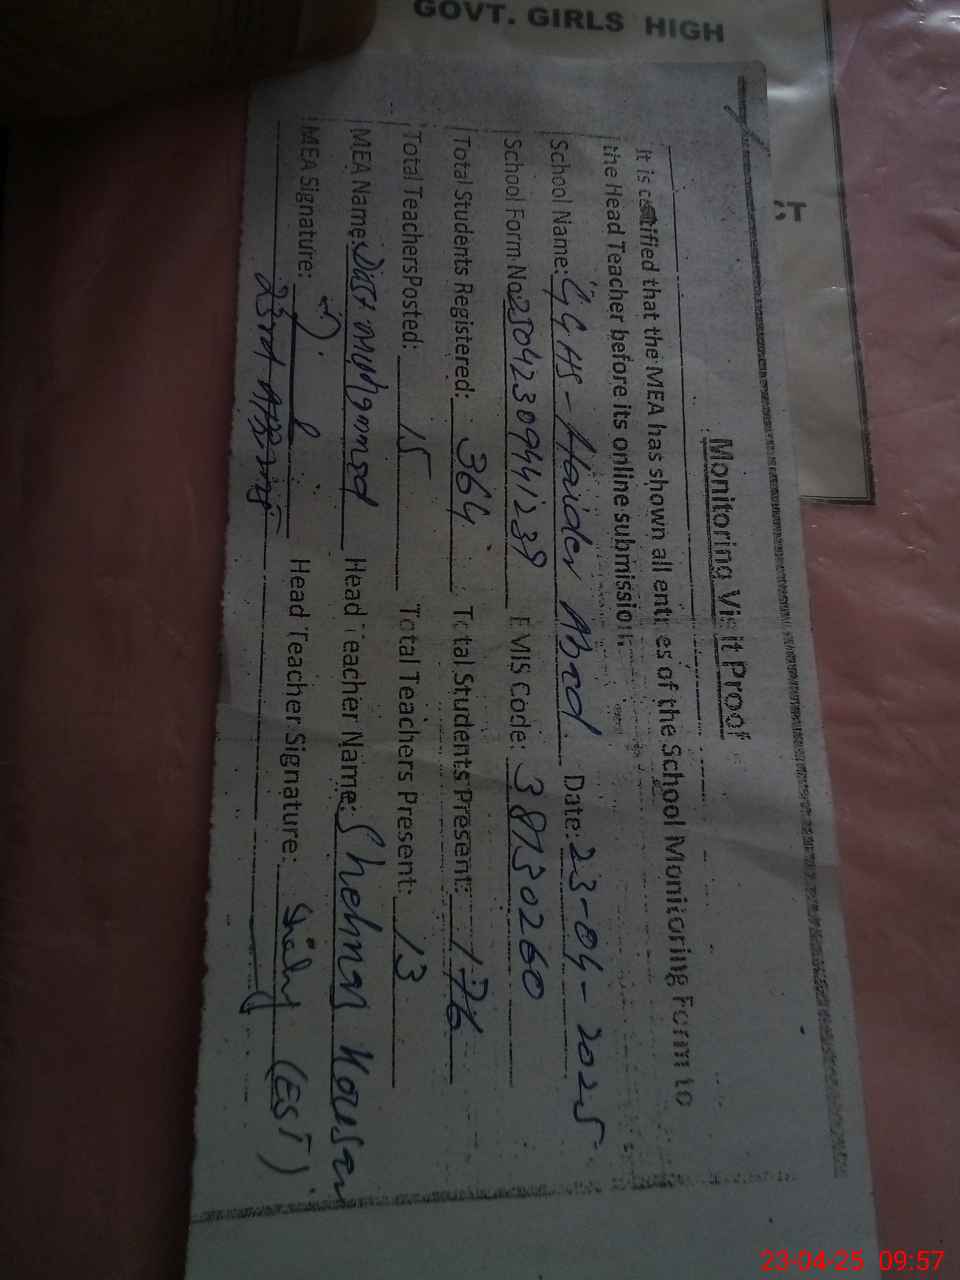 GOVT. GIRLS HIGH
Monitoring Visit Proof
It is certified that the MEA has shown all entries of the School Monitoring Form to
the Head Teacher before its online submission.
School Name: GGHS-Haider Abad Date: 23-04-2025
School Form No: EMIS Code: 38130260
Total Students Registered: 364 Total Students Present: 176
Total Teachers Posted: 15 Total Teachers Present: 13
MEA Name: Dost Muhammad Head Teacher Name: Shehnaz Kousar
MEA Signature: Head Teacher Signature: (EST)
23rd
23-04-25 09:57